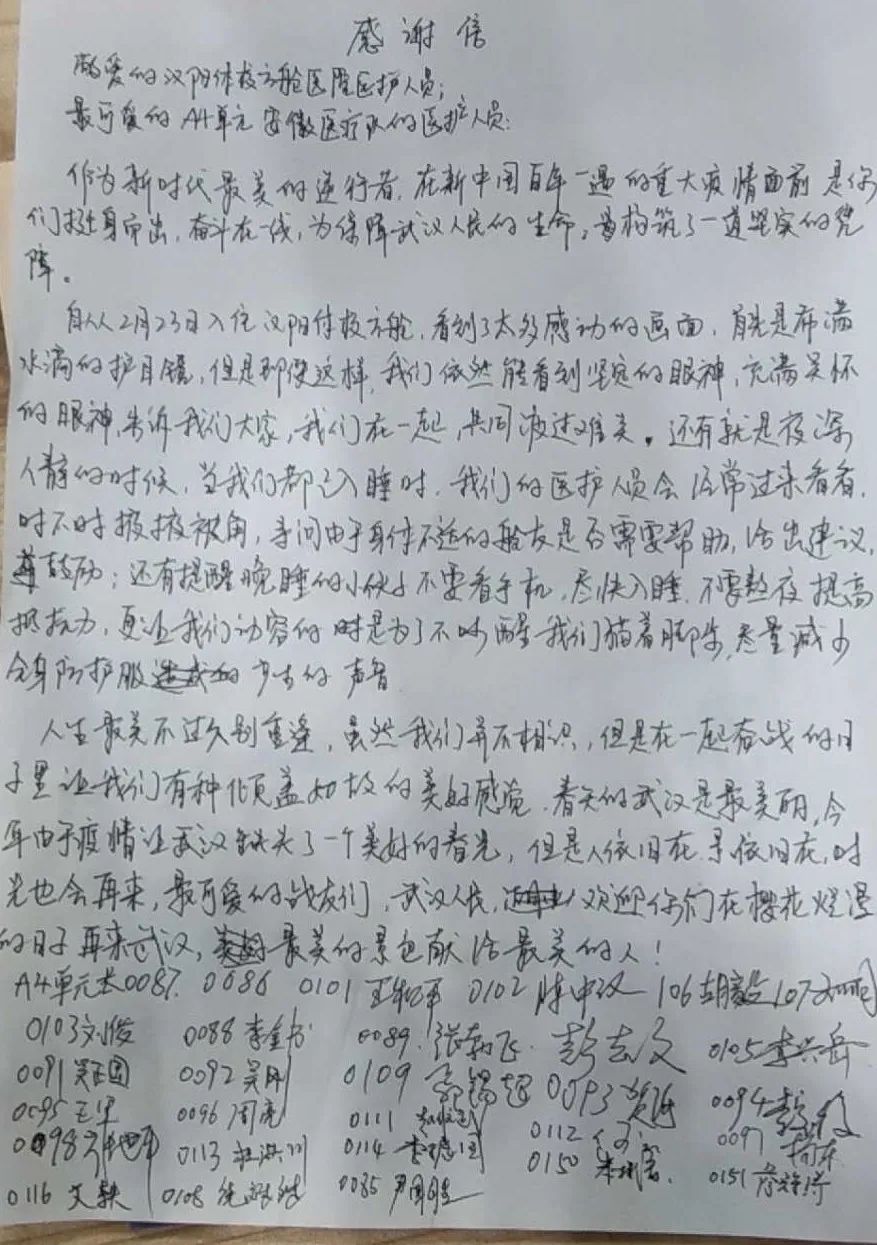 感谢信
敬爱的汉阳体校方舱医院医护人员；
最可爱的A4单元安徽医疗队的医护人员：
作为新时代最美的逆行者，在新中国百年一遇的重大疫情面前是你
们挺身而出，奋斗在一线，为保障武汉人民的生命，构筑了一道坚实的屏
障。
自从2月23日入住汉阳体校方舱，看到了太多感动的画面，首先是布满
水滴的护目镜，但是即使这样，我们依然能看到坚定的眼神，充满关怀
的眼神，告诉我们大家，我们在一起，共同渡过难关。还有就是夜深
人静的时候，当我们都已入睡时，我们的医护人员会经常过来看看，
时不时掖掖被角，寻问由于身体不适的舱友是否需要帮助，给出建议，
鼓励；还有提醒晚睡的小伙子不要看手机，尽快入睡，不要熬夜提高
抵抗力，更让我们动容的时是为了不吵醒我们猫着脚步，尽量减少
全身防护服 的声音
人生最美不过久别重逢，虽然我们并不相识，但是在一起奋战的日
子里让我们有种倾盖如故的美好感觉，春天的武汉是最美丽，今
年由于疫情让武汉缺失了一个美好的春光，但是人依旧在，景依旧在，时
光也会再来，最可爱的战友们，武汉人民，欢迎你们在樱花烂漫
的日子再来武汉，最美的景色献给最美的人！
A4单元长0087 0086 0101 王和平 0102 陈中汉 106 胡 107
0103刘俊 0088 李金书 0089 张 飞 彭志文 0105 李兴岳
0091 吴 国 0092 吴刚 0109 郭锡超 0093 0094
0095 王军 0096 周亮 0111 0112 0097
0098 0113 洪川 0114 李 国 0150 朱 0151
0116 艾轶 0108 0085 尹国胜